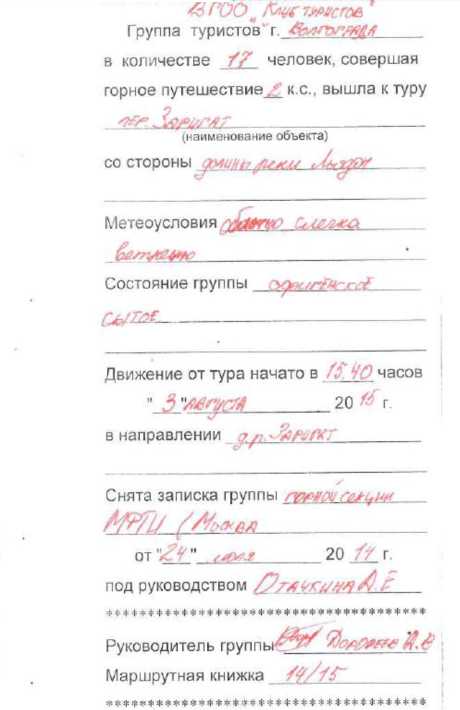 ВРОО "Клуб туристов"
Группа туристов г. Волгограда
в количестве 17 человек, совершая
горное путешествие 2 к.с., вышла к туру
пер. Заригат
(наименование объекта)
со стороны долины реки Льядон
Метеоусловия слегка
ветрено
Состояние группы офигенское
сытое
Движение от тура начато в 15.40 часов
"3" августа 2015 г.
в направлении д.р. Заригат
Снята записка группы горной секции
МФТИ (Москва
от "24" июля 2014 г.
под руководством Отачкина Д.Е
****************************************
Руководитель группы
Маршрутная книжка 14/15
****************************************